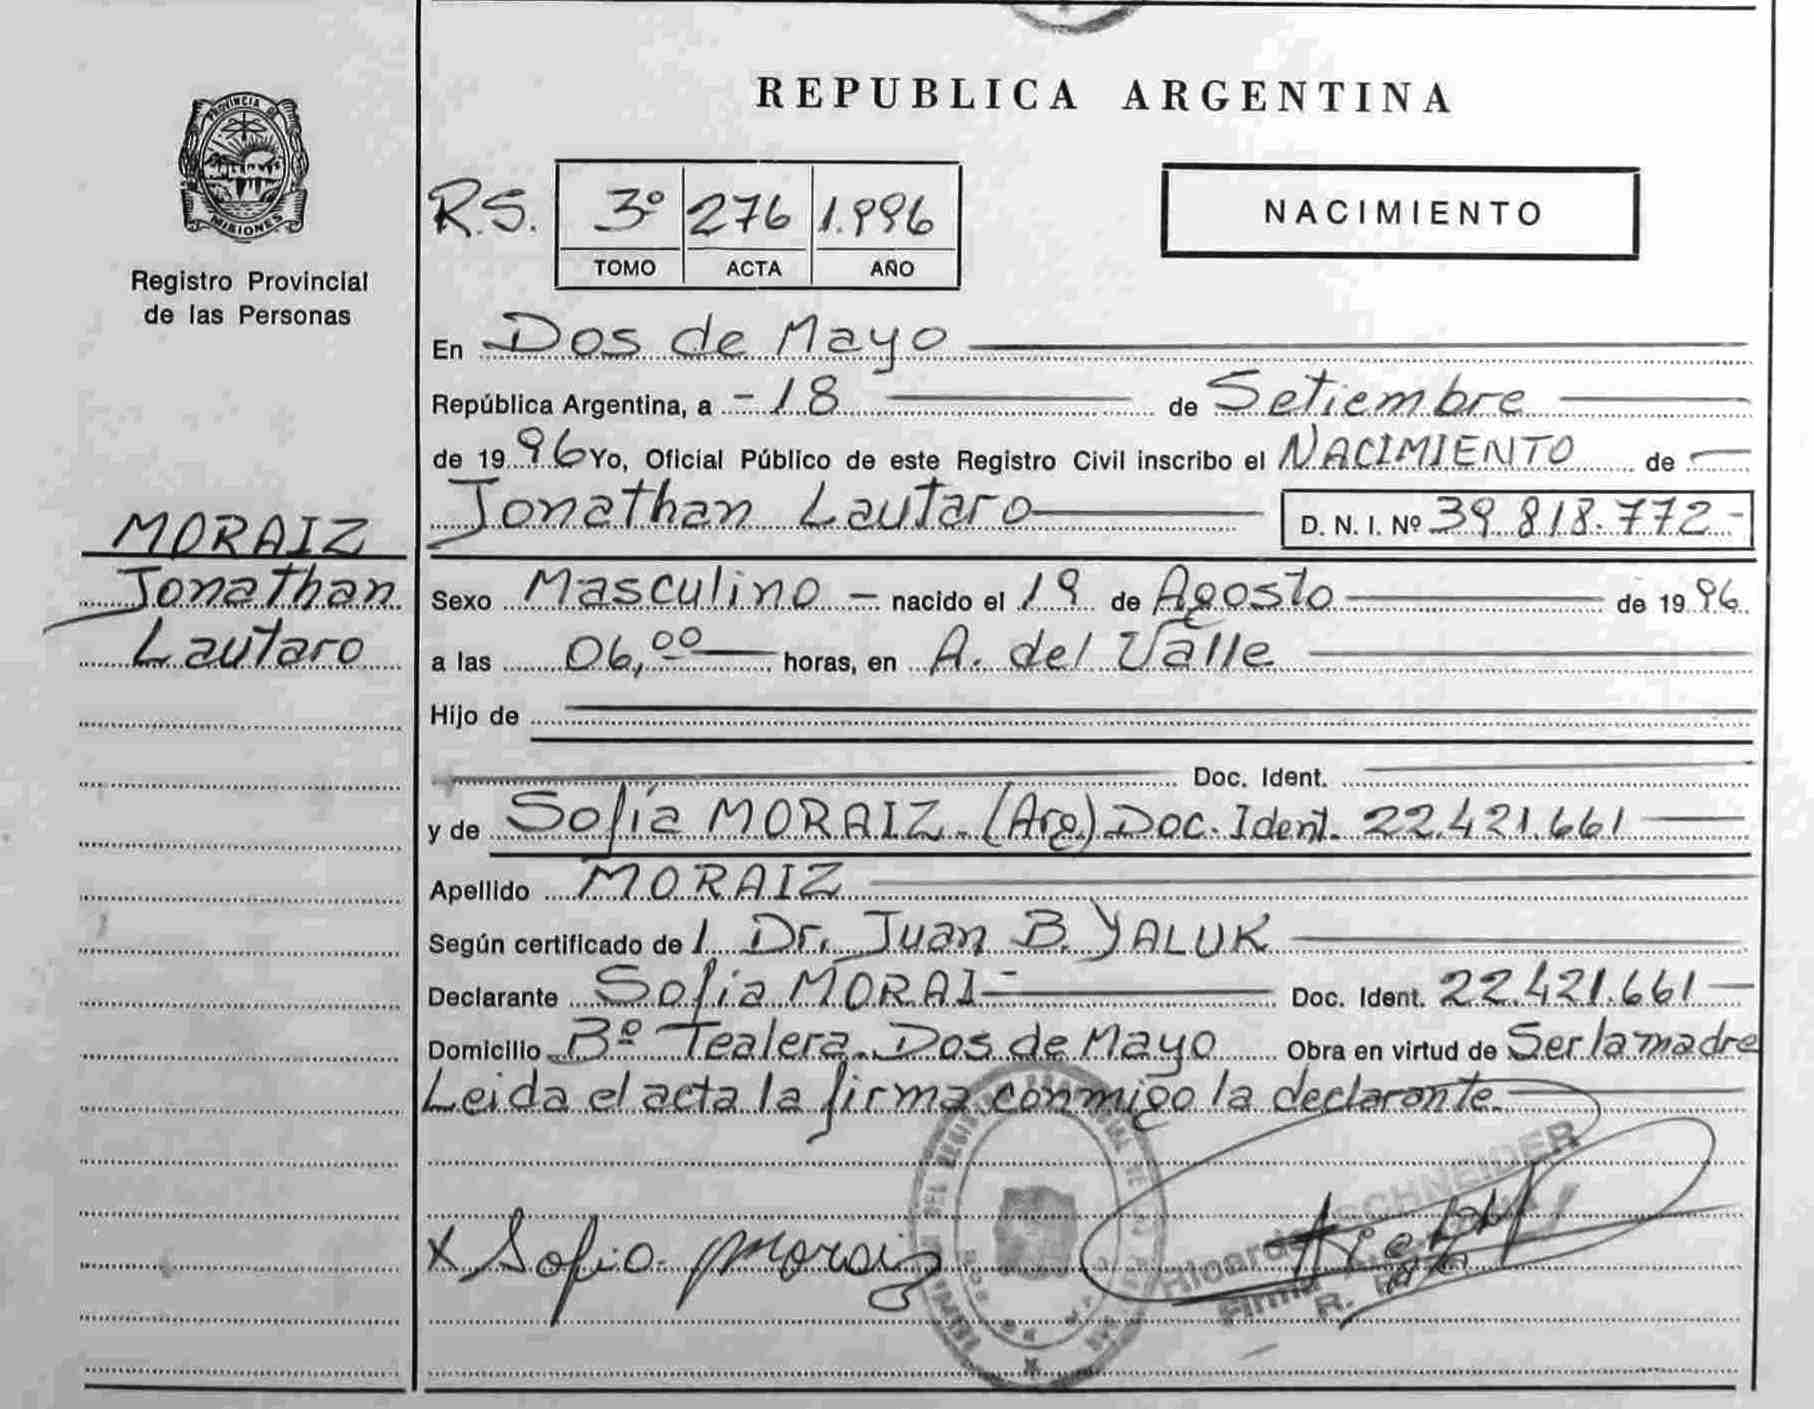 PROVINCIA DE
MISIONES
Registro Provincial
de las Personas
MORAIZ
Jonathan
Lautaro
REPUBLICA ARGENTINA
R.S. 3º 276 1.996
TOMO ACTA AÑO
NACIMIENTO
En Dos de Mayo
República Argentina, a - 18 de Setiembre
de 19 96 Yo, Oficial Público de este Registro Civil inscribo el NACIMIENTO de
Jonathan Lautaro D. N. I. Nº 39.818.772-
Sexo Masculino - nacido el 19 de Agosto de 19 96
a las 06,00 horas, en A. del Valle
Hijo de
Doc. Ident.
y de Sofía MORAIZ.(Arg.) Doc. Ident. 22.421.661
Apellido MORAIZ
Según certificado de l Dr. Juan B. YALUK
Declarante Sofía MORAI- Doc. Ident. 22.421.661
Domicilio Bº Tealera. Dos de Mayo Obra en virtud de Ser la madre
Leida el acta la firma conmigo la declarante.
X Sofia Moraiz
Ricardo SCHNEIDER
Firma
R.